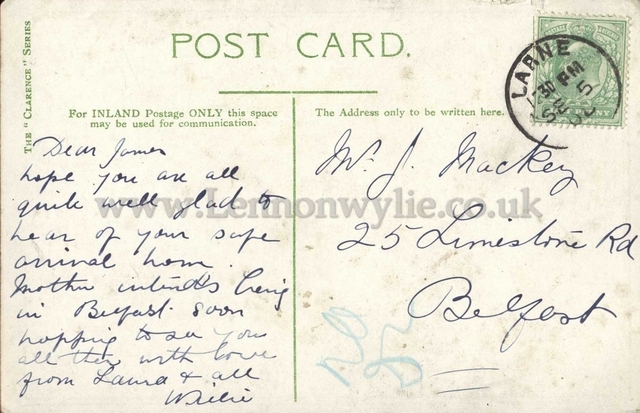 THE "CLARENCE" SERIES
POST CARD.
For INLAND Postage ONLY this space
may be used for communication.
The Address only to be written here.
Dear James
hope you are all
quite well glad to
hear of your safe
arrival home.
Mother intends being
in Belfast soon
hopping to see you
all then with love
from Laura & all
Willie
Mr. J. Mackey
25 Limestone Rd
Belfast
LARNE
30 PM
SE 5
www.Lennonwylie.co.uk